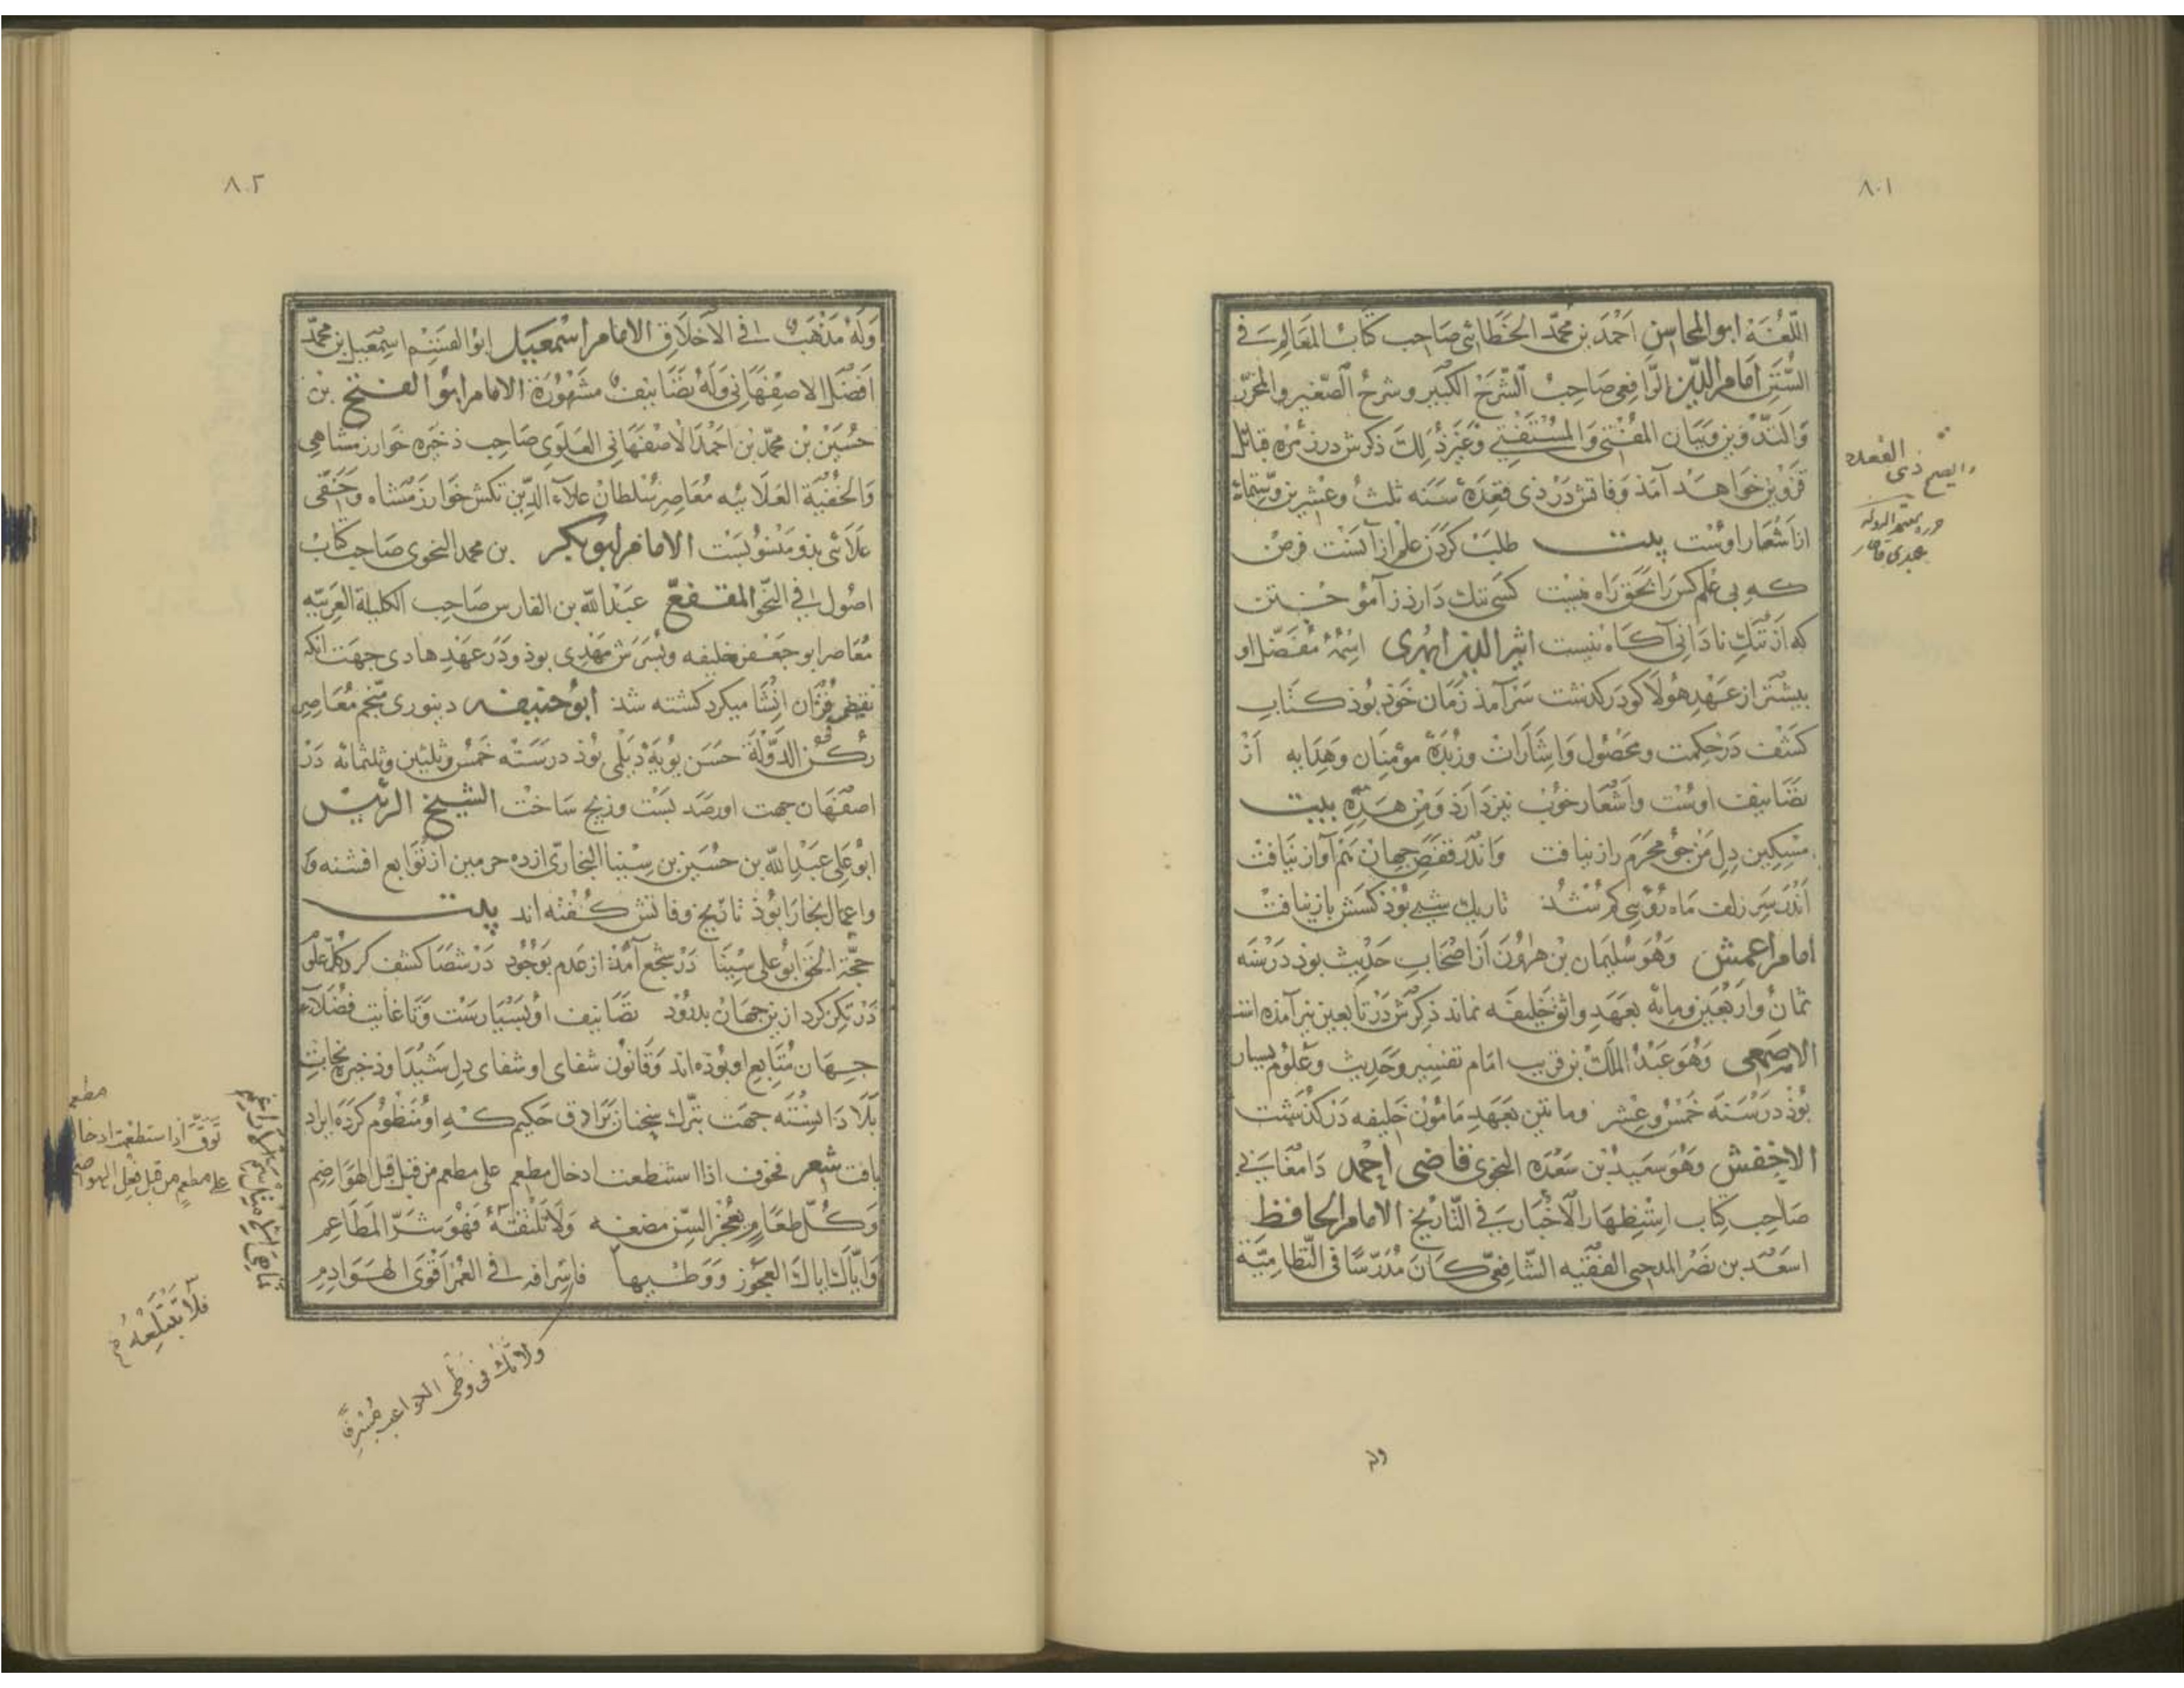 ٨٠١
اللّغُنَة ابو المحاسن اَحْمَد بن محمّد الخَطائی صَاحِب كتابُ المَعَالِم فے
السُّنَن امام الدّین الرَّافِعی صَاحِبُ الشَّرحْ الكَبیر وشرحُ الصّغیر والمحرّر
وَالتَّدْوین وبَیَان المفُتی وَالمُسْتَفْتے وَغَیر ذُلِكَ ذكرش در زمُره قبائل
قزوین خَواهَد آمَذ وَفاتش دَرْ ذی قعِدَهْ سَنَه ثلثُ وعشرین وستّمائه
از اَشعَار اوست بیت طلبْ كَردَن علم ازآنست فرض
كه بی عِلم كس را بحَقّ رَاه نیست كسی ننك دَارذ زآموختن
كه ازننكِ نادَانی آكَاه نیست اثیر الدین ابهری اسْمُهُ مفَضّل او
بیشتر از عَهدِ هُولَاكو دَركذشت سَرآمذ زمَان خَوذ بُوذ كتَابِ
كشْف دَرْحِكمت ومحصُول وَاِشَارَاتْ وزُبدَهْ مؤمِنان وَهِدَایه اَزْ
تصَانیف اوسْت واشعَار خوُب نیز دَارَذ وَمِن هَذِهِ بیت
مسْكین دِل مَنْ جوُ مَحرَمِ راز نیافت وَاندَر قفصِ جهَانْ هَم آواز نیَافتْ
اَندَر سَرِ زلف مَاه رُوئی كم شُذ تاریك شبی بُوذ كسَش باز نیافتْ
امام اعمش وَهُوَ سُلیمَان بن هَارُونْ از اصْحَابِ حَدیث بوذ دَرْ سَنَه
ثمان وَارْبَعَین ومِائه بعَهَدِ واثق خَلیفَه نماند ذِكرش دَرْ تابعین نیز آمَذه است
الاصمعی وَهُوَ عَبْدُ المَلك بْن قریب امَام تفسِیر وحَدیث وعُلوم بسیار
بُوذ در سَنَه خمَسْ وعِشر ومأتین بعَهدِ مَامون خَلیفه دَرْ كذشت
الاخفش وَهُوَ سَعیدْ بْن سَعْدَه النحوی قاضی احمد دَامغَانی
صَاحِب كتِاب استِظهَار الاَخْبار فے التّاریخ الامام الحافظ
اسعَد بن نَصْر المدحی الفقیه الشّافعیّ كانَ مُدَرّسًا فی النّظامیَّة
والصح ذی القعده
حرره معتمد الدوله
وله
٨٠٢
وَلَهُ مَذهَبٌ فے الاَخلاَق الامام اسْمعَیل ابوُ الفتح اسمعیل بن محمّد
افضَل الاصفهَانی وَلهُ تصَانیفُ مشهُورَة الامام ابوُ الفتح بن
حُسَیْن بن محمّد بن احمْد الاصفهَانی العَلوی صَاحِب ذخیَره خوَارزمشاهی
وَالخُفیّه العَلائیه مُعَاصِر سُلطان علاَء الدّین تكش خوَارزمشاه وَخفی
علاَئی بذو منسوُبَست الامام ابو بكر بن محمد النحوی صَاحِب كتابْ
اصُول فے النّحو المقفع عَبْد الله بن الفارس صَاحِب الكلیلة العَربیّه
مُعَاصر ابو جَعْفر خلیفه وَپسَرش مَهْدِی بوذ ودَر عَهدِ هَادی جهَت انكه
نقیض قرآن انشا میكرد كشته شذ ابوُحنیفه دینوری منجّم مُعَاصِر
رُكن الدَّوْلَة حَسَن بُویَهْ دیَلمی بُوذ در سَنَه خمَسْ وثلثین وثلثمائه دَرْ
اصفَهَان جهت او رصَد بَسْت وزیج سَاختْ الشیخ الرئیس
ابوُعَلی عَبْد الله بن حُسَین بن سِینا البخاریّ از ده حرمین از توَابع افشنه وَ
واعمال بخارَا بُوذ تاریخ وفاتش كفته اند بیت
حجّة الحَق ابوُ علی سِینَا دَرْ شجَع آمذ از عَدم بَوُجُود دَرْ شصَا كشف كرد كلّ علوم
دَرْ تكز كرد ازین جهَانْ بدرُود تصَانیف اوُ بسیارست وَتا غایت فضلآء
جهَان متابع او بُوذه اند وقانون شفای او شفای دِل شَیْدا وذخیره نجاتِ
بَلا دَانسته جهت تبرّك سخنان بزاذق حَكیم كه او منظوُم كرده ایراد
یافت شعر فخوف اذا استطعت ادخال مطعم علی مطعم من قبل قبل الهَوَاضِم
وَكُلّ طعَامٍ یعجز السِّن مضغه وَلاَ تلقفنّه فهْوَ شَرّ المَطَاعِم
وَایّاك ایاك العجَوُز ووَطیها فاسرافه فے العُمْر اَقوَی الهَوَادِم
مطعم
تَوَقَّ اذا استطعْت ادخال
علی مطعمٍ من قبل فِعْلِ الهواضم
فلا تَبْتَلِعْهُ
ولا تك فی وطی الكواعب مُسْرِفاً